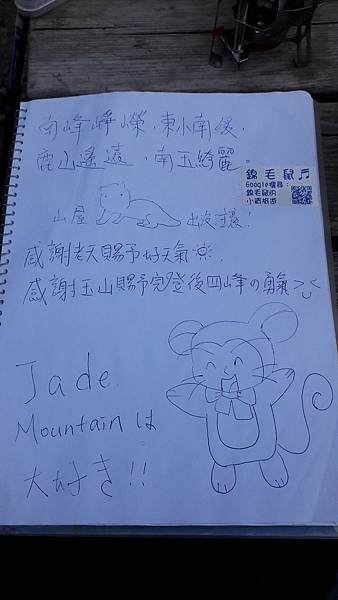 南峰崢嶸,東小南後,
鹿山遙遠,南玉綺麗。
錦毛鼠♬
Google搜尋:
錦毛鼠的
小資旅遊
山屋 出沒注意!
感謝老天賜予好天氣
感謝玉山賜予完登後四峰の勇氣
Jade
Mountain は
大好き!!